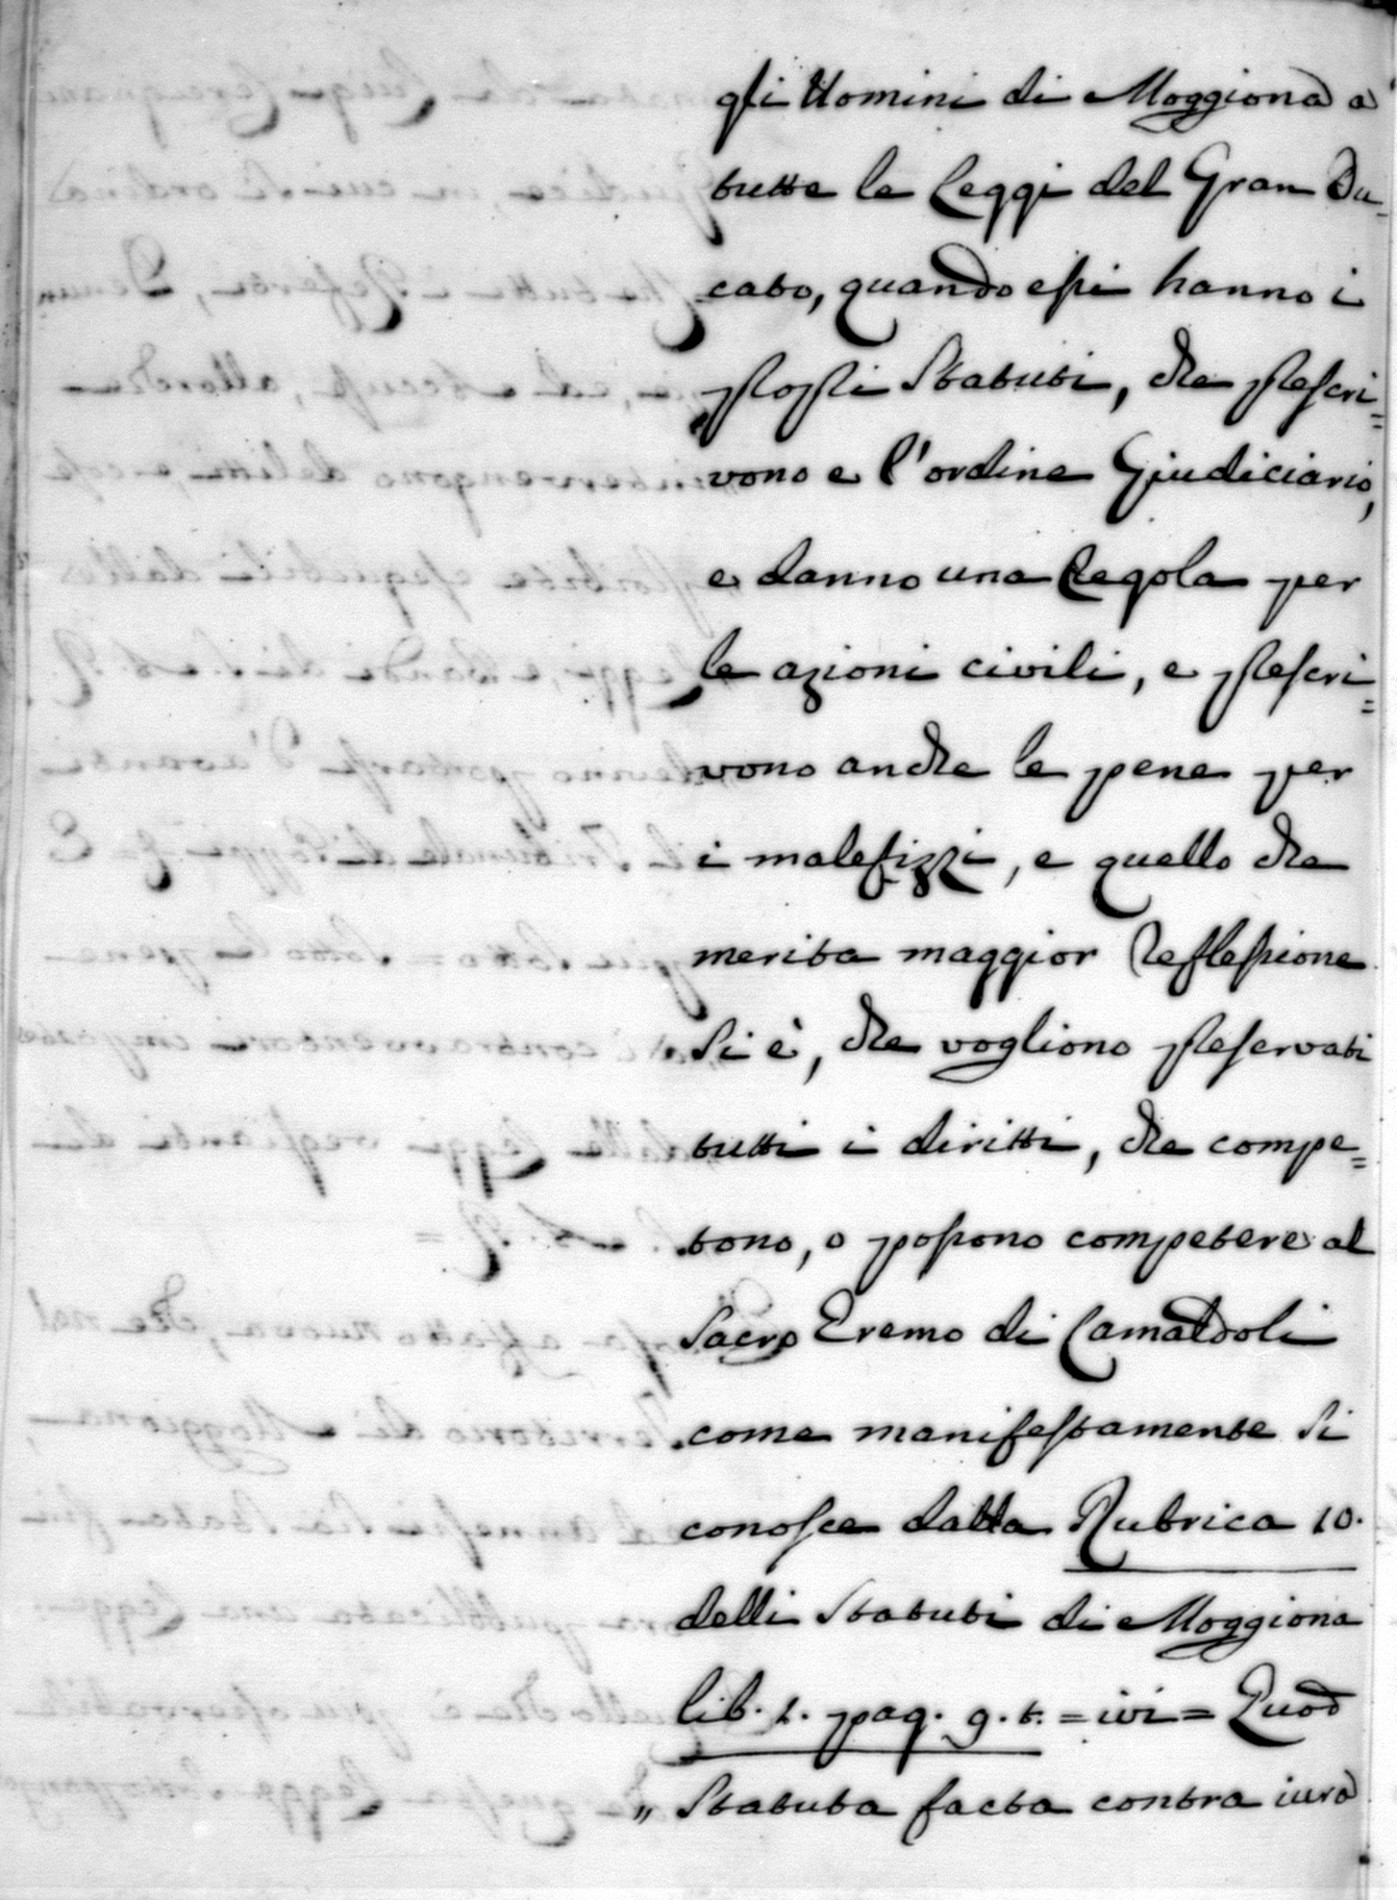 gli Uomini di Moggiona a
tutte le Leggi del Gran Du-
cato, quando essi hanno i
proprii Statuti, che prescri=
vono e l'ordine Giudiciario,
e danno una Regola per
le azioni civili, e prescri=
vono anche le pene per
i malefizzi, e quello che
merita maggior reflessione
si è, che vogliono preservati
tutti i diritti, che compe=
tono, o possono competere al
Sacro Eremo di Camaldoli
come manifestamente si
conosce dalla Rubrica 10.
delli Statuti di Moggiona
lib. 1. pag. 9. t. = ivi = Quod
„ Statuta facta contra iura